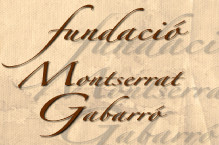 fundació
Montserrat
Gabarró